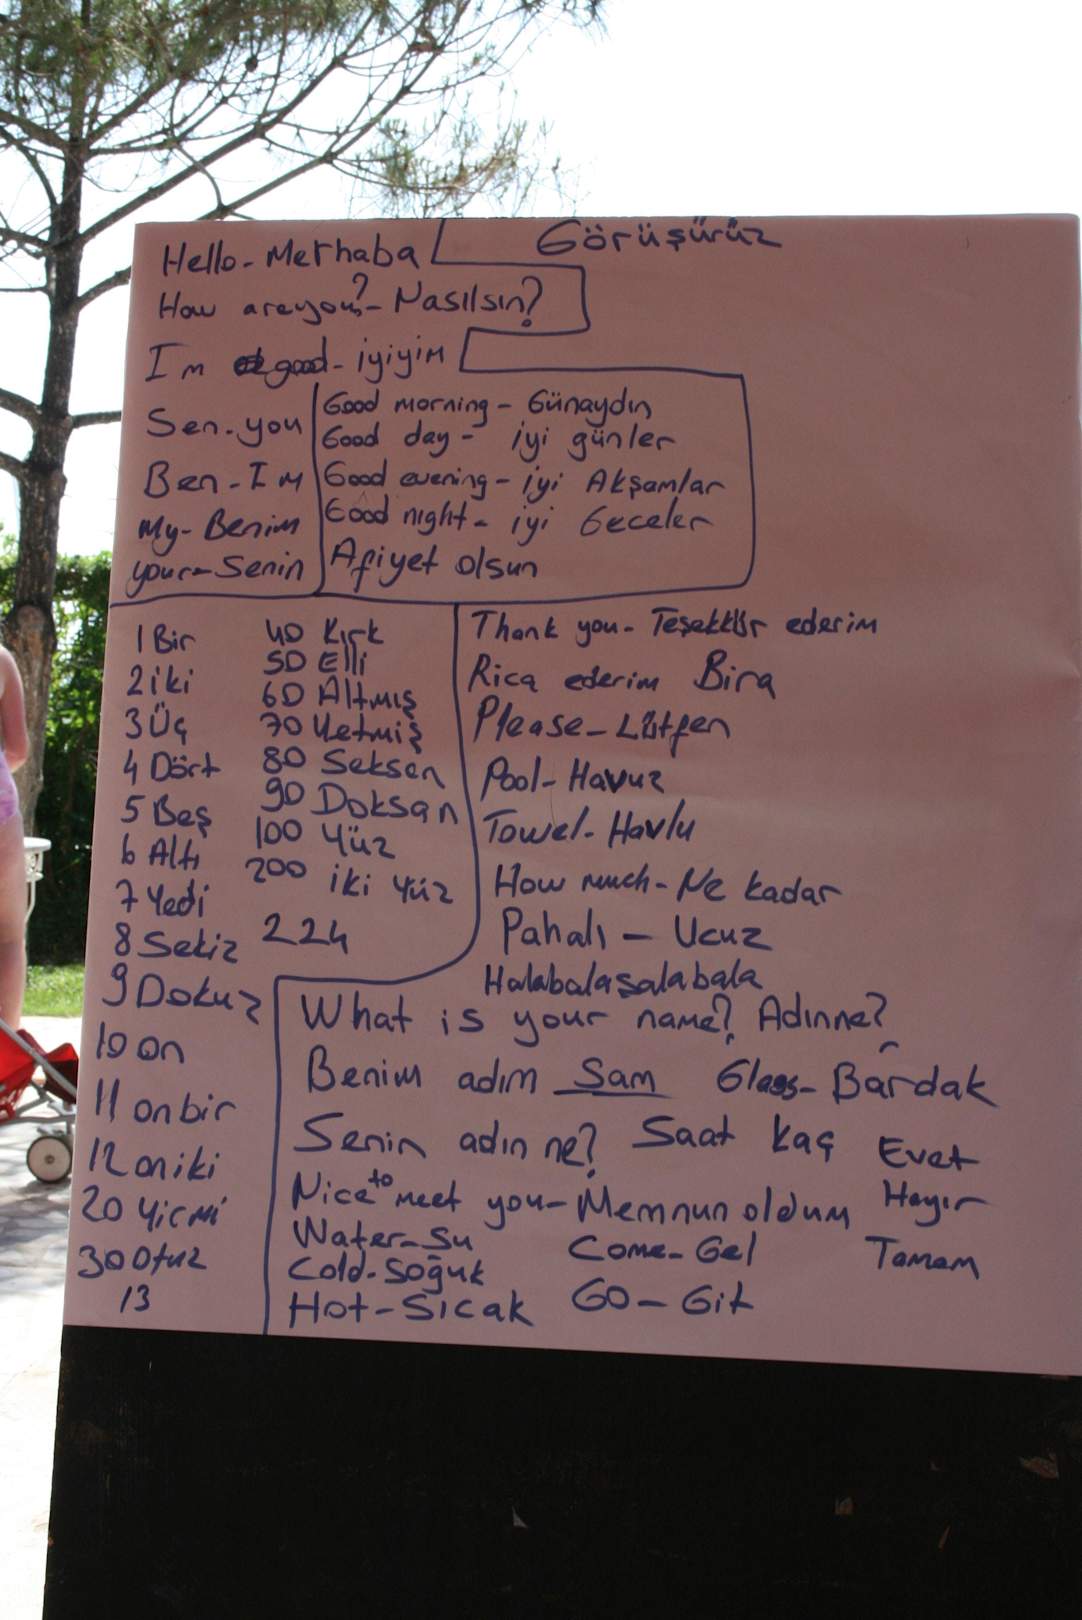 Görüşürüz
Hello - Merhaba
How are you? - Nasılsın?
I'm good - iyiyim
Sen - you
Ben - I'm
My - Benim
your - Senin
Good morning - Günaydın
Good day - iyi günler
Good evening - iyi Akşamlar
Good night - iyi Geceler
Afiyet olsun
1 Bir
2 iki
3 Üç
4 Dört
5 Beş
6 Altı
7 Yedi
8 Sekiz
9 Dokuz
10 on
11 onbir
12 oniki
20 Yirmi
30 Otuz
13
40 Kırk
50 Elli
60 Altmış
70 Yetmiş
80 Seksen
90 Doksan
100 Yüz
200 iki yüz
224
Thank you - Teşekkür ederim
Rica ederim Bira
Please - Lütfen
Pool - Havuz
Towel - Havlu
How much - Ne kadar
Pahalı - Ucuz
Halabalaşalabala
What is your name? Adınne?
Benim adım Sam Glass - Bardak
Senin adın ne? Saat kaç Evet
Nice to meet you - Memnun oldum Hayır
Water - Su Come - Gel Tamam
Cold - Soğuk
Hot - Sıcak GO - Git